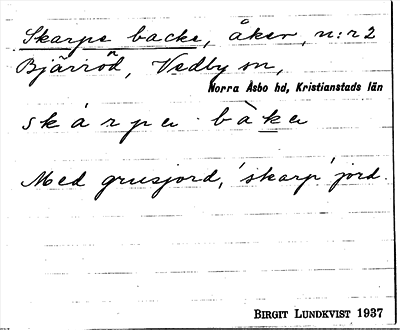 Skarpe backe, åker, n:r 2
Bjärröd, Vedby sn,
Norra Åsbo hd, Kristianstads län
skárpa bàka
Med grusjord, 'skarp' jord.
BIRGIT LUNDKVIST 1937